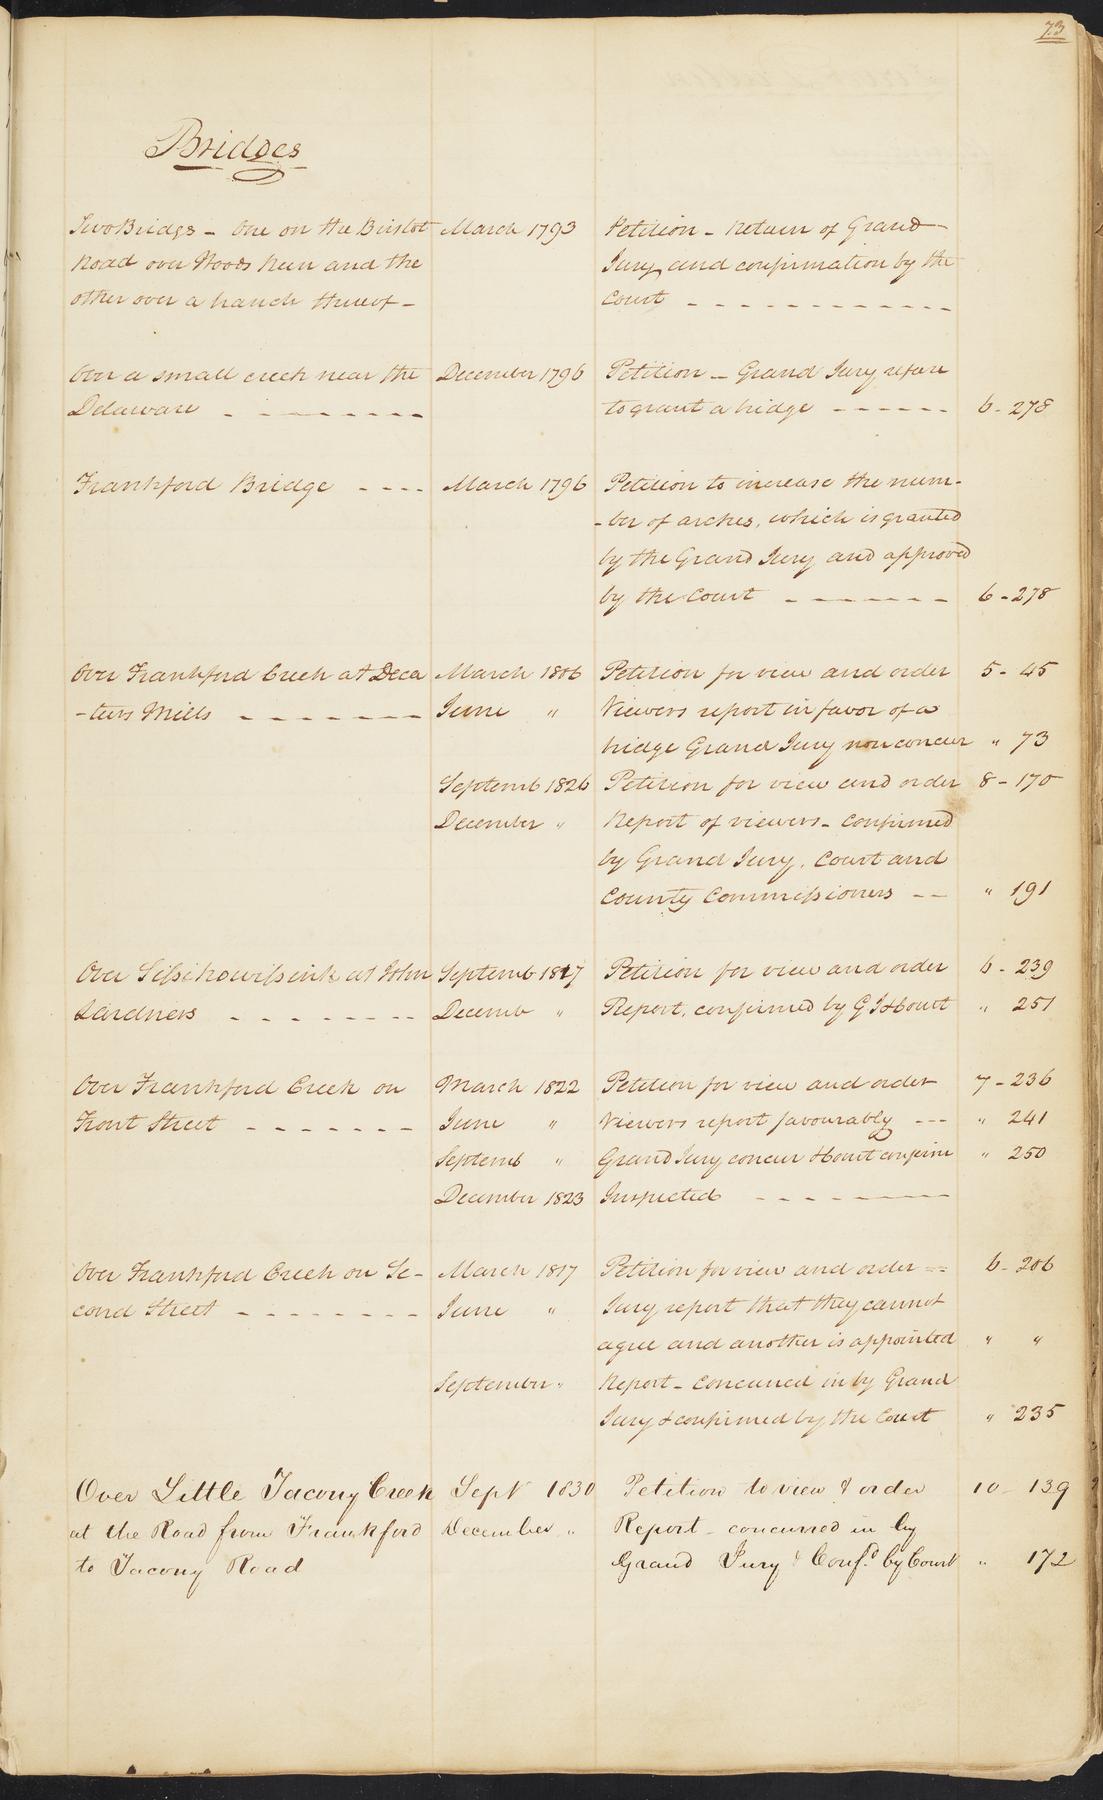 73
Bridges
Two Bridgs - One on the Bristol March 1793 Petition - Return of Grand
Road over Woods Run and the Jury and confirmation by the
other over a branch thereof - Court
Over a small creek near the December 1796 Petition - Grand Jury refuse
Delaware to grant a bridge 6 - 278
Frankford Bridge March 1796 Petition to increase the num-
-ber of arches, which is granted
by the Grand Jury and approved
by the Court 6 - 278
Over Frankford Creek at Deca March 1806 Petition for view and order 5 - 45
-turs Mills June " Viewers report in favor of a
bridge Grand Jury non concur " 73
Septemb 1826 Petition for view and order 8 - 170
December " Report of viewers - confirmed
by Grand Jury, Court and
County Commissioners " 191
Over Sissikowissink at John Septemb 1817 Petition for view and order 6 - 239
Lardners Decemb " Report, confirmed by G J & Court " 251
Over Frankford Creek on March 1822 Petition for view and order 7 - 236
Front Street June " Viewers report favourably " 241
Septemb " Grand Jury concur & Court confirm " 250
December 1823 Inspected
Over Frankford Creek on Se- March 1817 Petition for view and order 6 - 206
cond Street June " Jury report that they cannot
agree and another is appointed " "
September " Report - concurred in by Grand
Jury & confirmed by the Court " 235
Over Little Tacony Creek Sept 1830 Petition to view & order 10 - 139
at the Road from Frankford December " Report - concurred in by
to Tacony Road Grand Jury & Conf.d by Court " 172